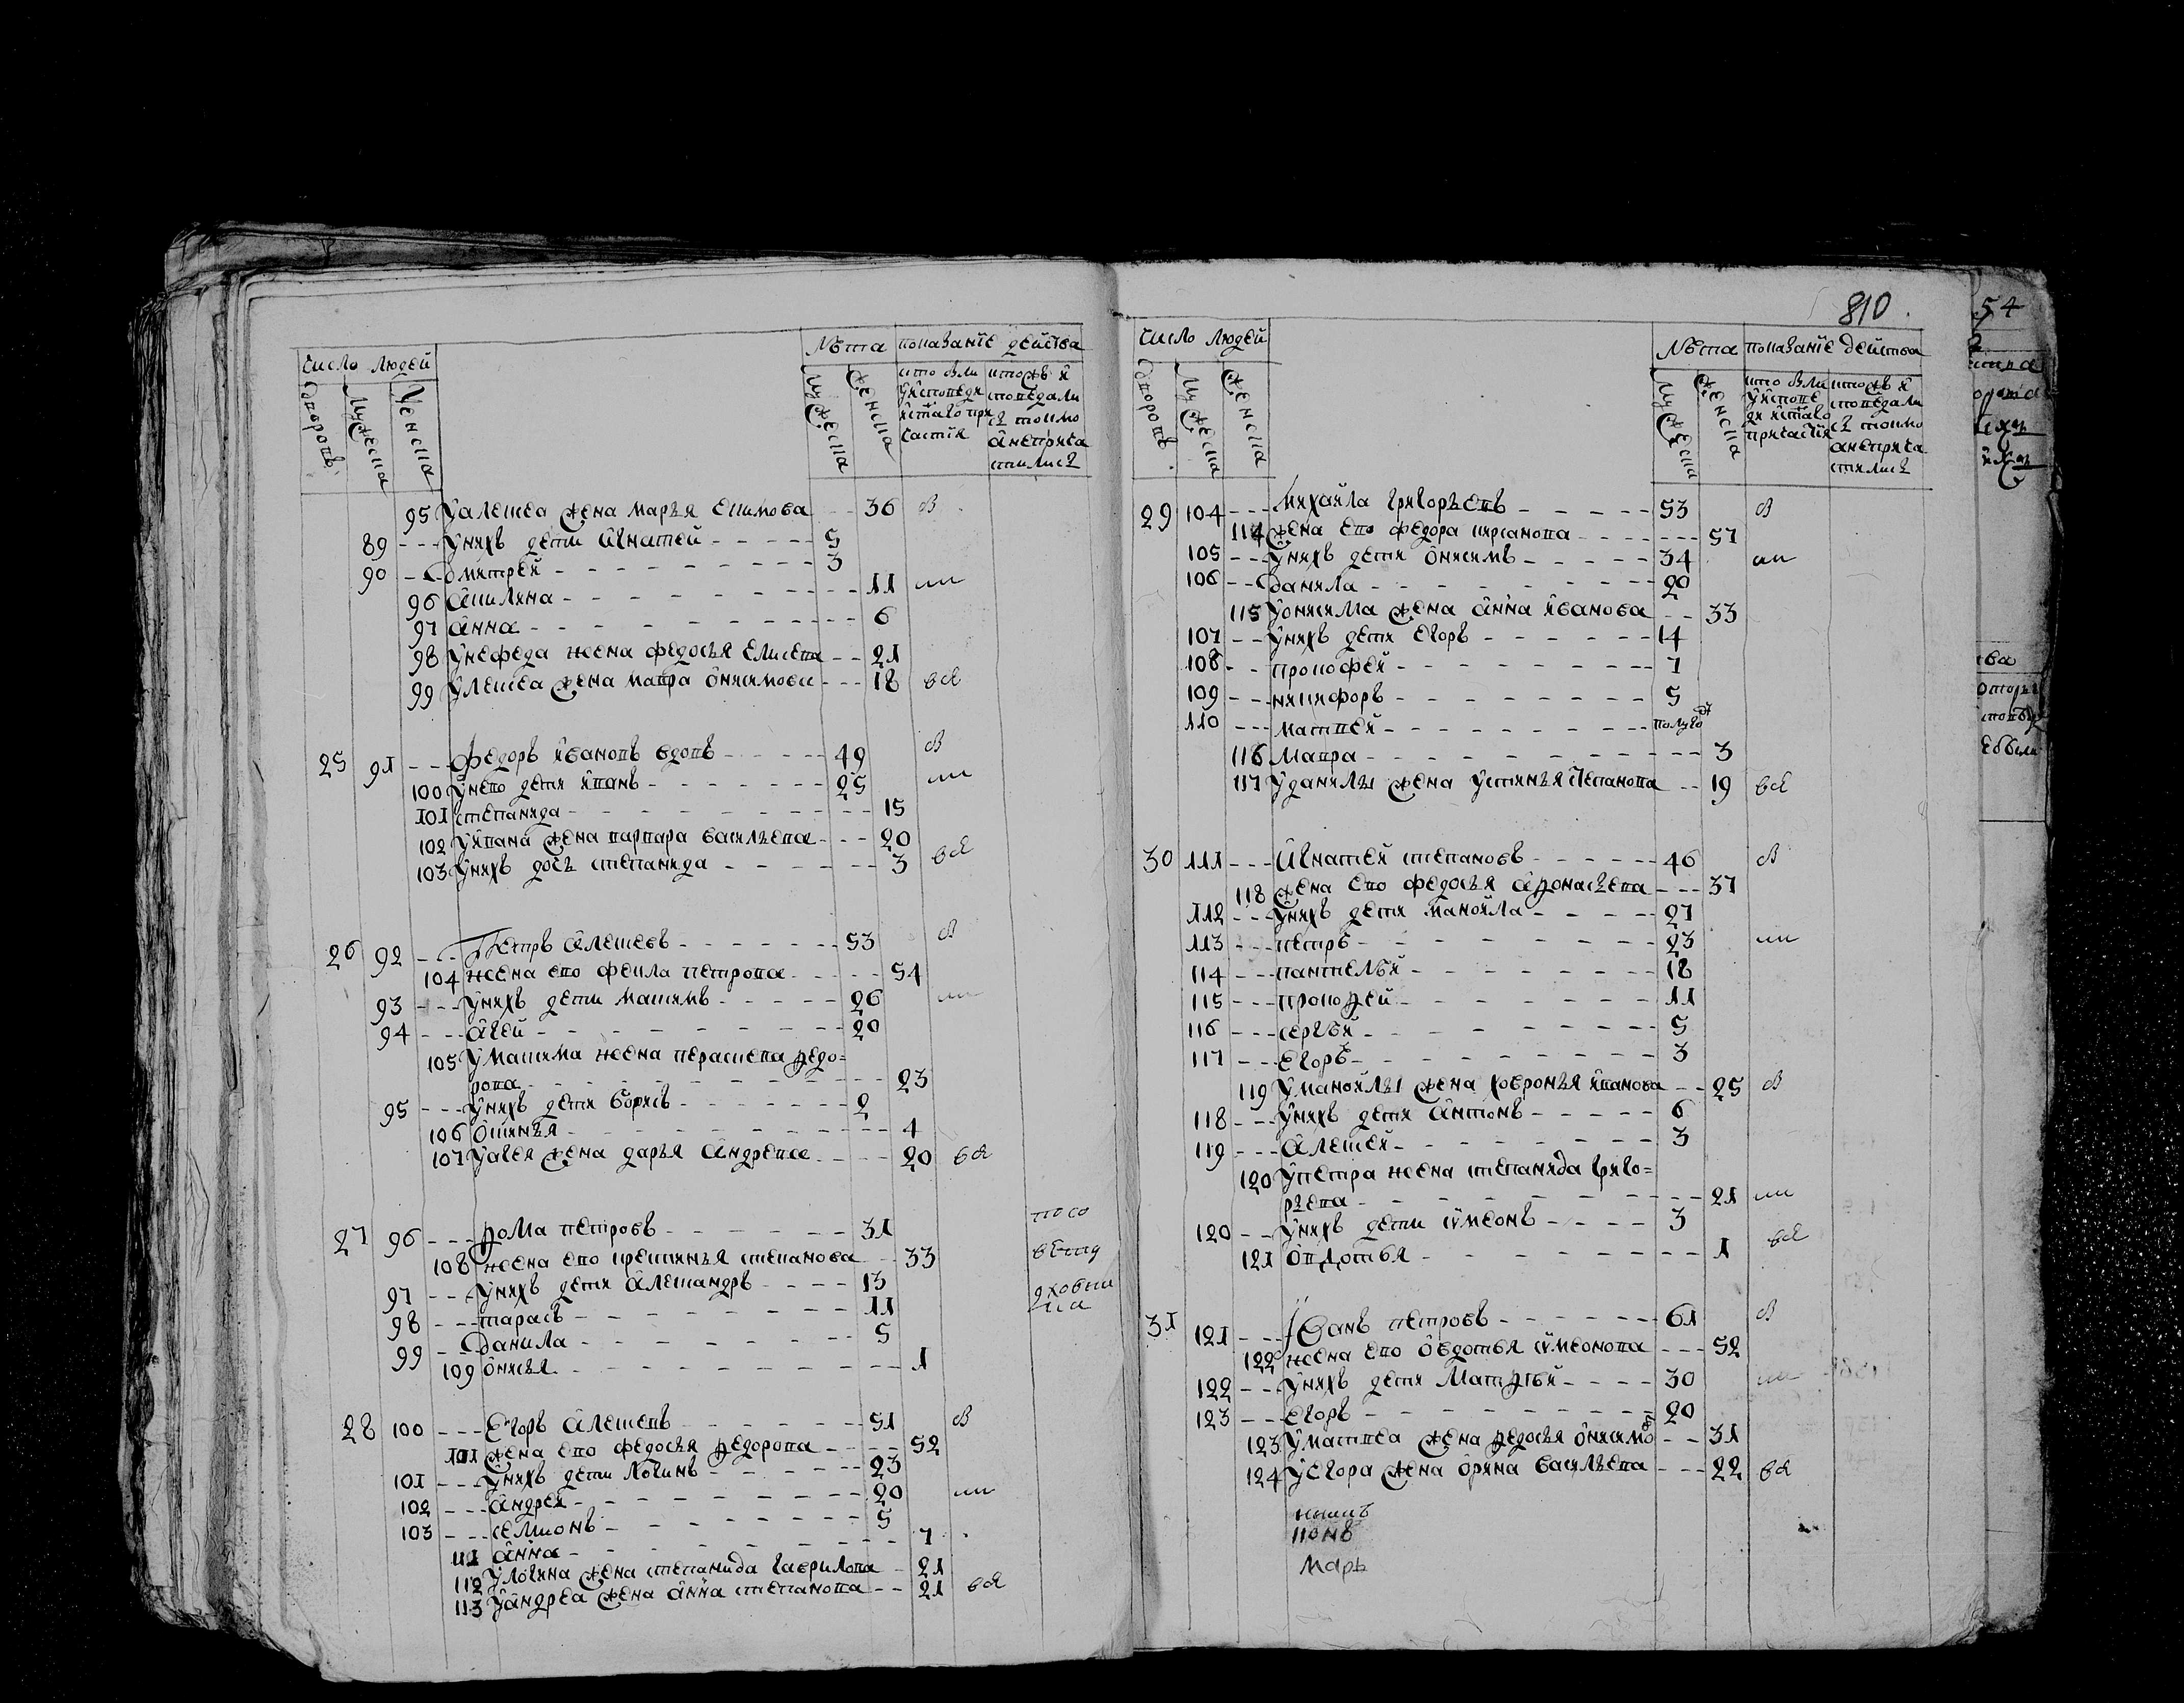 число людей
лѣта показанїе действа
дворовъ
мужеска
женска
мужеска
женска
кто были
у исповеди
и с̃таго при
частия
кто жъ и
споведали
сь токмо
а не прича
стились
95 у алеѯеа жена марья екимова - - 36 в
89 - - - у нихъ дети игнатей - - - - - 5
90 - - дмитрей - - - - - - - - 3
96 акилина - - - - - - - - - 11
97 анна - - - - - - - - 6
98 у нефеда жена федосья елисева - - 21
99 у алеѯеа жена мавра онисимова - - - 18 всѣ
25 91 - - - федоръ ивановъ вдовъ - - - - 49 в
100 у него дети иванъ - - - - - - 25
101 степанида - - - - - - - - 15
102 у ивана жена варвара васильева - - - 20
103 у нихъ дочь степанида - - - - - - 3 всѣ
26 92 - - - Петръ алеѯеевъ - - - - - - 53 в
104 жена его фекла петрова - - - - - 54
93 - - - у нихъ дети маѯимъ - - - - - 26
94 - - - агей - - - - - - - - 20
105 у маѯима жена парасковеа ѳедо=
рова - - - - - - - - - 23
95 - - - у нихъ дети борисъ - - - - - - 2
106 оѯинья - - - - - - - - - 4
107 у агея жена дарья андреева - - - - 20 всѣ
27 96 - - - ѳома петровъ - - - - - - 31
108 жена его крестинья степанова - - 33
97 - - - у нихъ дети алеѯандръ - - - - 13
98 - - - тарасъ - - - - - - - - 11
99 - - данила - - - - - - - - 5
109 онисья - - - - - - - - - 1
28 100 - - - егоръ алеѯеевъ - - - - - - 51 в
101 жена его федосья ѳедорова - - - - 52
101 - - - у нихъ дети логинъ - - - - - - 23
102 - - - андрей - - - - - - - - 20
103 - - - семионъ - - - - - - - - 5
111 анна - - - - - - - - - 7
112 у логина жена степанида гаврилова - 21
113 у андреа жена анна степанова - - 21 всѣ
810
число людей
лѣта показанїе действа
дворовъ
мужеска
женска
мужеска
женска
кто были
у испове
ди и с̃таго
причастия
кто жъ и
споведали
сь токмо
а не прича
стились
29 104 - - - михайла григорьевъ - - - - - 53 в
114 жена его федора кирсанова - - - - - - 57
105 - - - у нихъ дети онисимъ - - - - - 34
106 - - данила - - - - - - - - 20
115 у онисима жена анна иванова - - 33
107 - - у нихъ дети егоръ - - - - - - 14
108 - - прокофей - - - - - - - - 7
109 - - - никифоръ - - - - - - - 5
110 - - - матвей - - - - - - - - полугода
116 мавра - - - - - - - - - - 3
117 у данилы жена устинья степанова - - 19 всѣ
30 111 - - - игнатей степановъ - - - - - - 46 в
118 жена его федосья аѳонасьева - - - 37
112 - - - у нихъ дети манойла - - - - - 27
113 - - - петръ - - - - - - - - 23
114 - - - пантелѣй - - - - - - - 18
115 - - - прокоѳей - - - - - - - 11
116 - - - сергѣй - - - - - - - - 5
117 - - - егоръ - - - - - - - - 3
119 у манойлы жена ховронья иванова - - 25 в
118 - - - у нихъ дети антонъ - - - - - 6
119 - - - алеѯей - - - - - - - - 3
120 у петра жена степанида григо=
рьева - - - - - - - - - - 21
120 - - у нихъ дети сѵмеонъ - - - - 3
121 овдотья - - - - - - - - - 1 всѣ
31 121 - - - Иванъ петровъ - - - - - - 61 в
122 жена его овдотья сѵмеонова - - - 52
122 - - у нихъ дети матѳѣй - - - - 30
123 - - егоръ - - - - - - - - 20
123 у матвеа жена ѳедосья онисимова - - 31
124 у егора жена орина васильева - - - 22 всѣ
марь